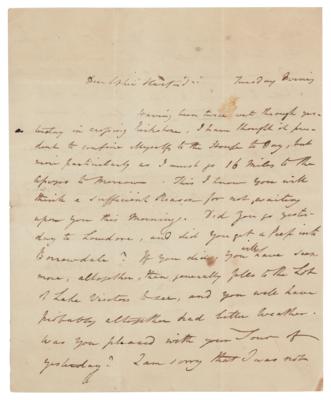 Tuesday Evening
Having been twice wet through yes-
terday in crossing Yorkshire, I have thought it pru-
dent to confine Myself to the House to Day, but
more particularly as I must go 16 Miles to the
to Morrow. This I know you will
think a sufficient Reason for not waiting
upon you this Morning. Did You go yester-
day to Loudore, and did you get a Peep into
Borrowdale? If you did, You will have seen
more, altogether, than generally folls to the Lot
of Lake Visitors to see, and you will have
probably altogether had better Weather.
Was you pleased with your Tour of
yesterday? I am sorry that I was not